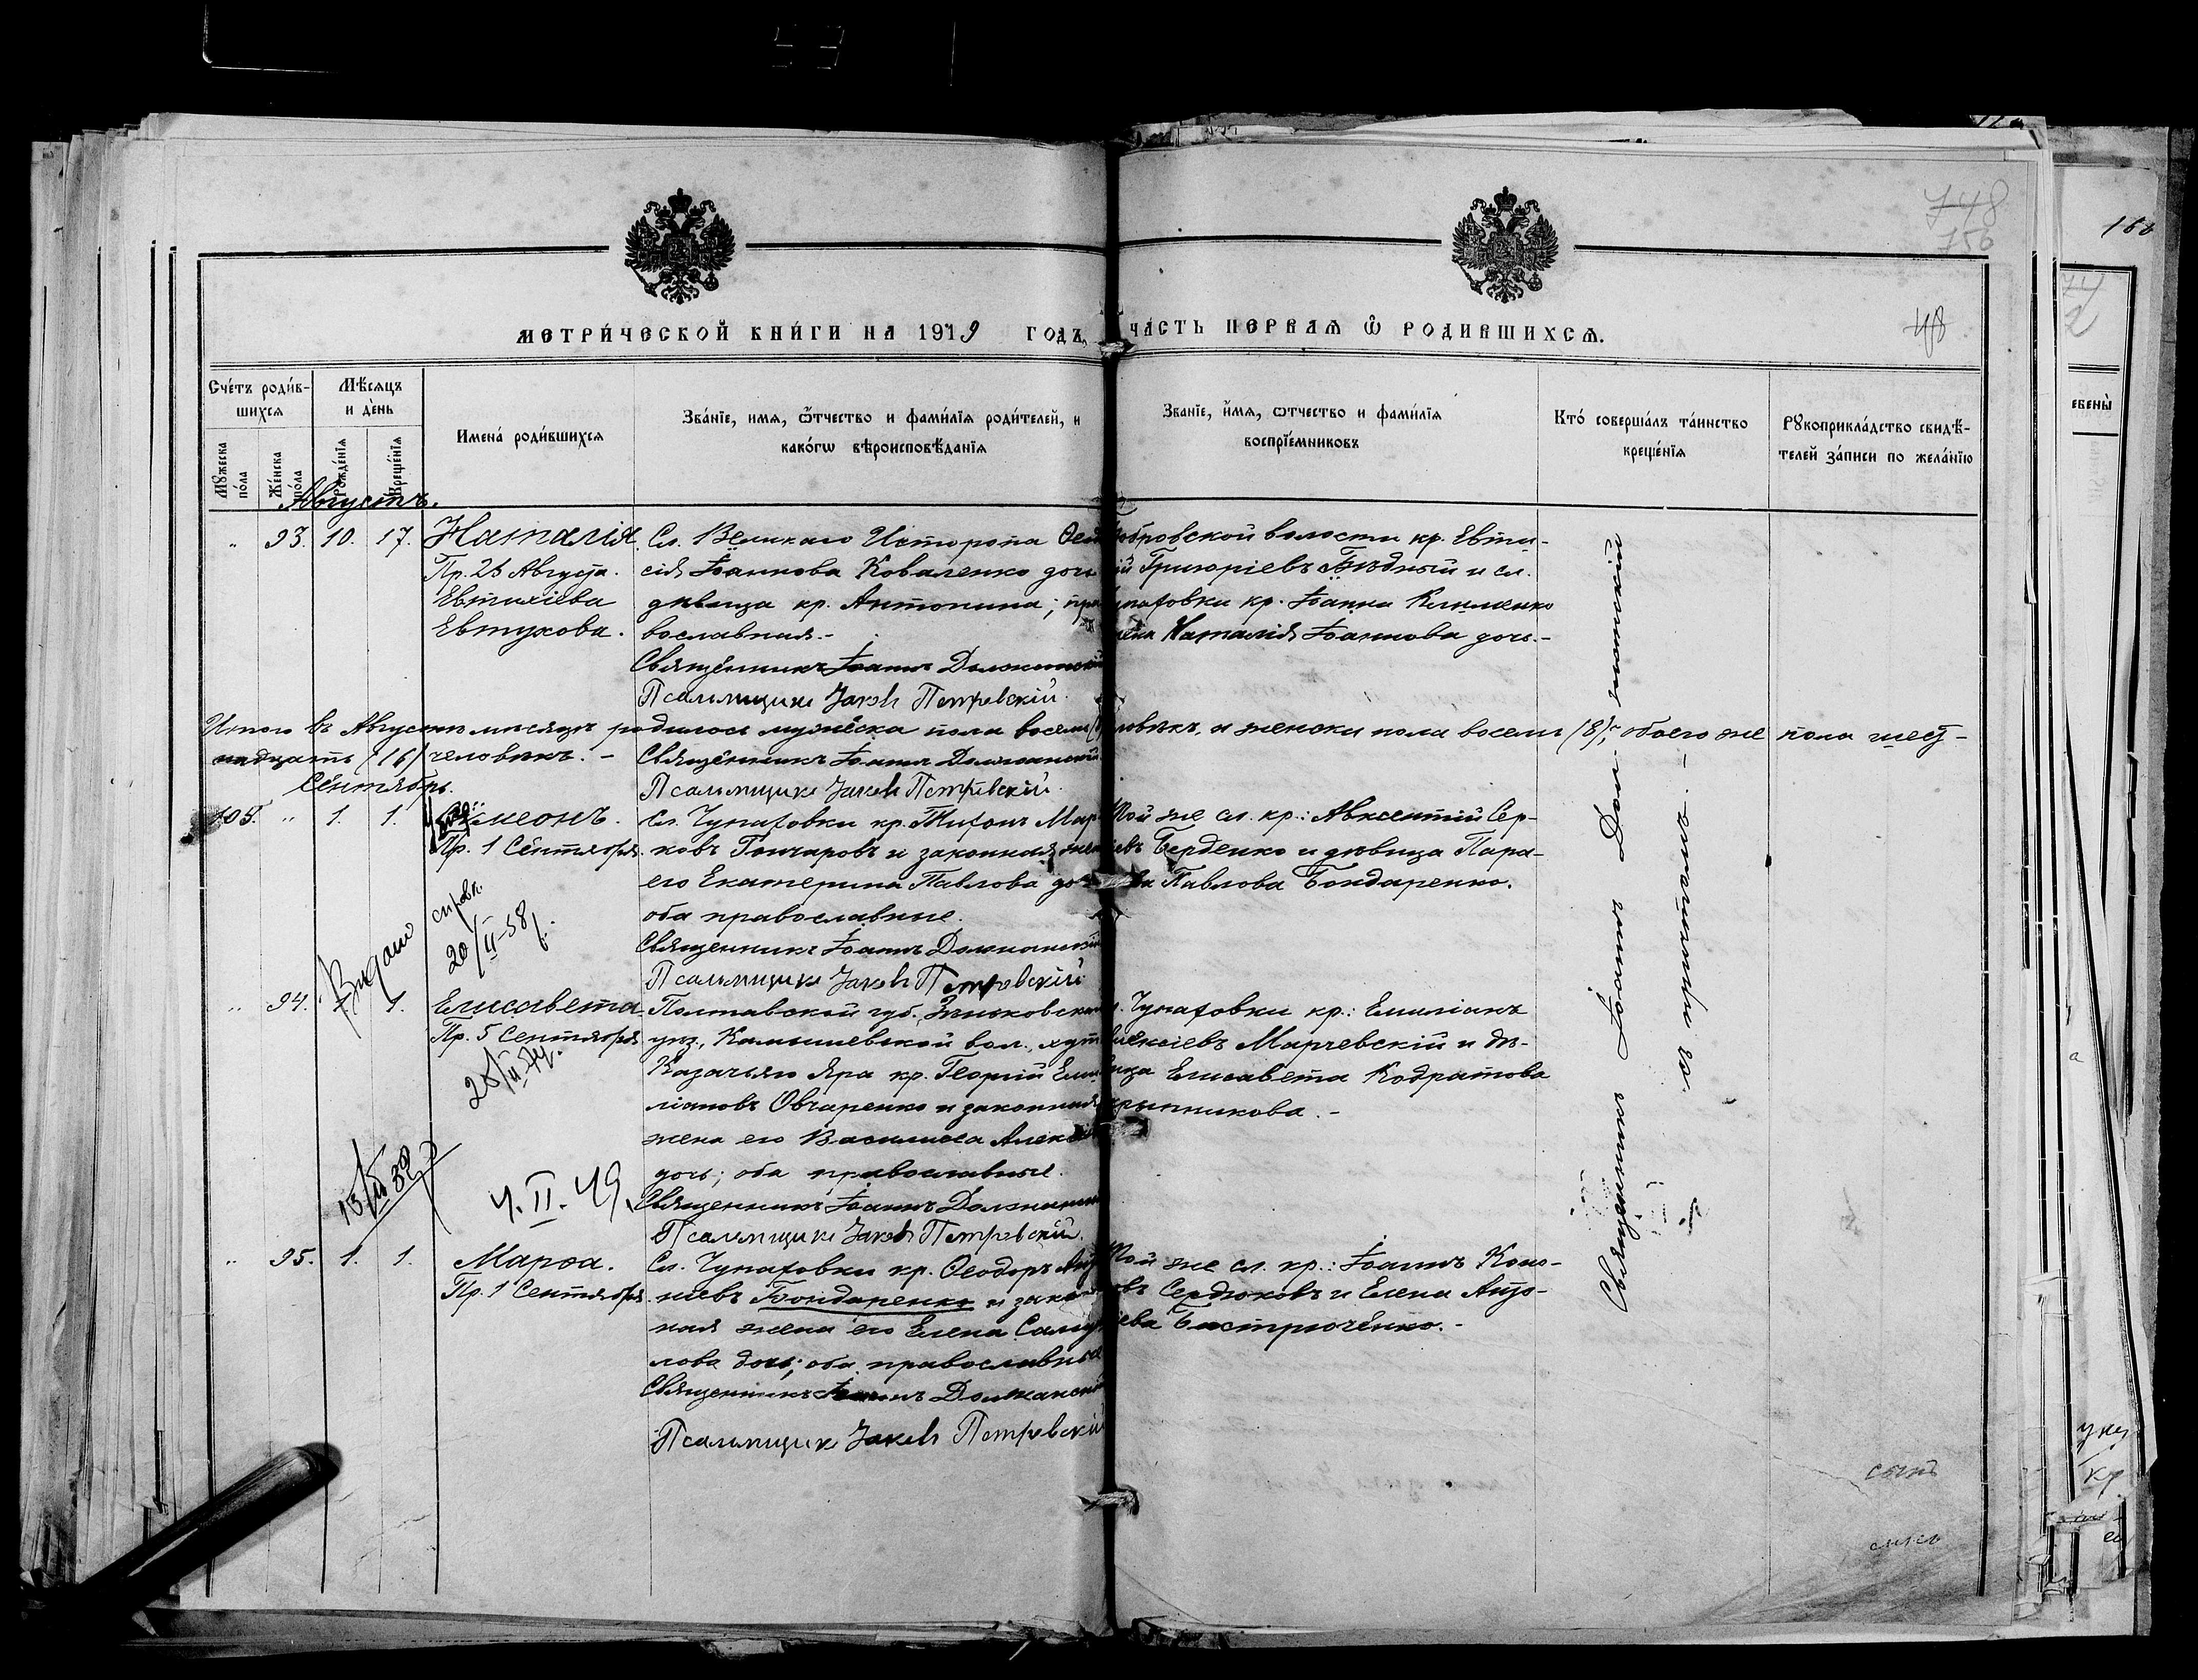 748
156
48
168
МЕТРИ́ЧЕСКОЙ КНИ́ГИ НА 1919 ГОДЪ, ЧА́СТЬ ПЕРВАѦ Ѡ҆ РОДИВШИХСѦ.
Сче́тъ роди́в-
шихсѧ
Мꙋ́жеска
по́ла
Же́нска
по́ла
Мѣ́сѧцъ
и де́нь
Рожде́нїѧ
Креще́нїѧ
Имена́ роди́вшихсѧ
Зва́нїе, имѧ, ѻ҆́тчество и фами́лїѧ роди́телей, и
како́гѡ вѣроисповѣ́данїѧ
Зва́нїе, и҆́мѧ, ѻтчество и фами́лїѧ
воспрїе́мниковъ
Кто́ соверша́лъ та́инство
креще́нїѧ
Рꙋкоприкла́дство свидѣ́-
телей за́писи по жела́нїю
Августъ.
" 93. 10. 17. Наталія
Пр. 26 Августа.
Евтихіева
Евтухова.
Сл. Великаго Истеропа
сія Іоаннова Коваленко дочь
дѣвица кр. Антонина; пра-
вославная.-
Священникъ Іоаннъ Должанскій
Псаломщикъ Іаковъ Петровскій.
бровской волости кр. Евти-
й Григоріевъ Бѣдный и сл.
Чупаховки кр. Іоанна Клименко
жена Наталія Іоаннова дочь.-
Итого въ Августѣ мѣсяцѣ родилось мужеска пола восемь человѣкъ, и женска пола восемь (8), обоего же пола шест-
надцать (16) человѣкъ. -
Священникъ Іоаннъ Должанскій
Псаломщикъ Іаковъ Петровскій.
Сентябрь.
105. " 1. 1. Симеонъ.
Пр. 1 Сентября.
Сл. Чупаховки кр. Тихонъ Мар-
ковъ Гончаровъ и законная жена
его Екатерина Павлова дочь
оба православные.
Священникъ Іоаннъ Должанскій
Псаломщикъ Іаковъ Петровскій
Той же сл. кр.: Авксентій Сер-
евъ Берденко и дѣвица Пара-
ва Павлова Бондаренко.
Видано справк.
20/II-58 г.
" 94. 1. 1. Елисавета
Пр. 5 Сентября
Полтавской губ. Зѣньковскаго
уѣз., Камышевской вол., хут.
Казачьяго Яра кр. Георгій Еми-
ліановъ Овчаренко и законная
жена его Василиса Алексі
дочь; оба православные.
Священникъ Іоаннъ Должанскій
Псаломщикъ Іаковъ Петровскій.
Чупаховки кр.: Емиліанъ
Алексіевъ Марчевскій и дѣ-
вица Елисавета Кодратова
рынникова. -
4.II.49.
" 95. 1. 1. Марѳа.
Пр. 1 Сентября.
Сл. Чупаховки кр. Ѳеодоръ
ніевъ Бондаренко и закон-
ная жена его Елена Самуи-
лова дочь; оба православные
Священникъ Іоаннъ Должанскій
Псаломщикъ Іаковъ Петровскій
Той же сл. кр.: Іоаннъ Коно-
овъ Сердюковъ и Елена Анто-
ніева Быстрюченко. -
Священникъ Іоаннъ Должанскій
съ причтомъ. -